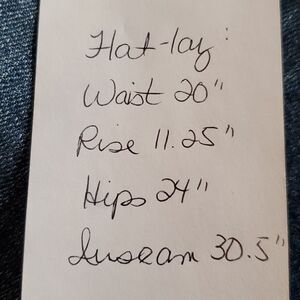 Flat-lay:
Waist 20"
Rise 11.25"
Hips 24"
Inseam 30.5"